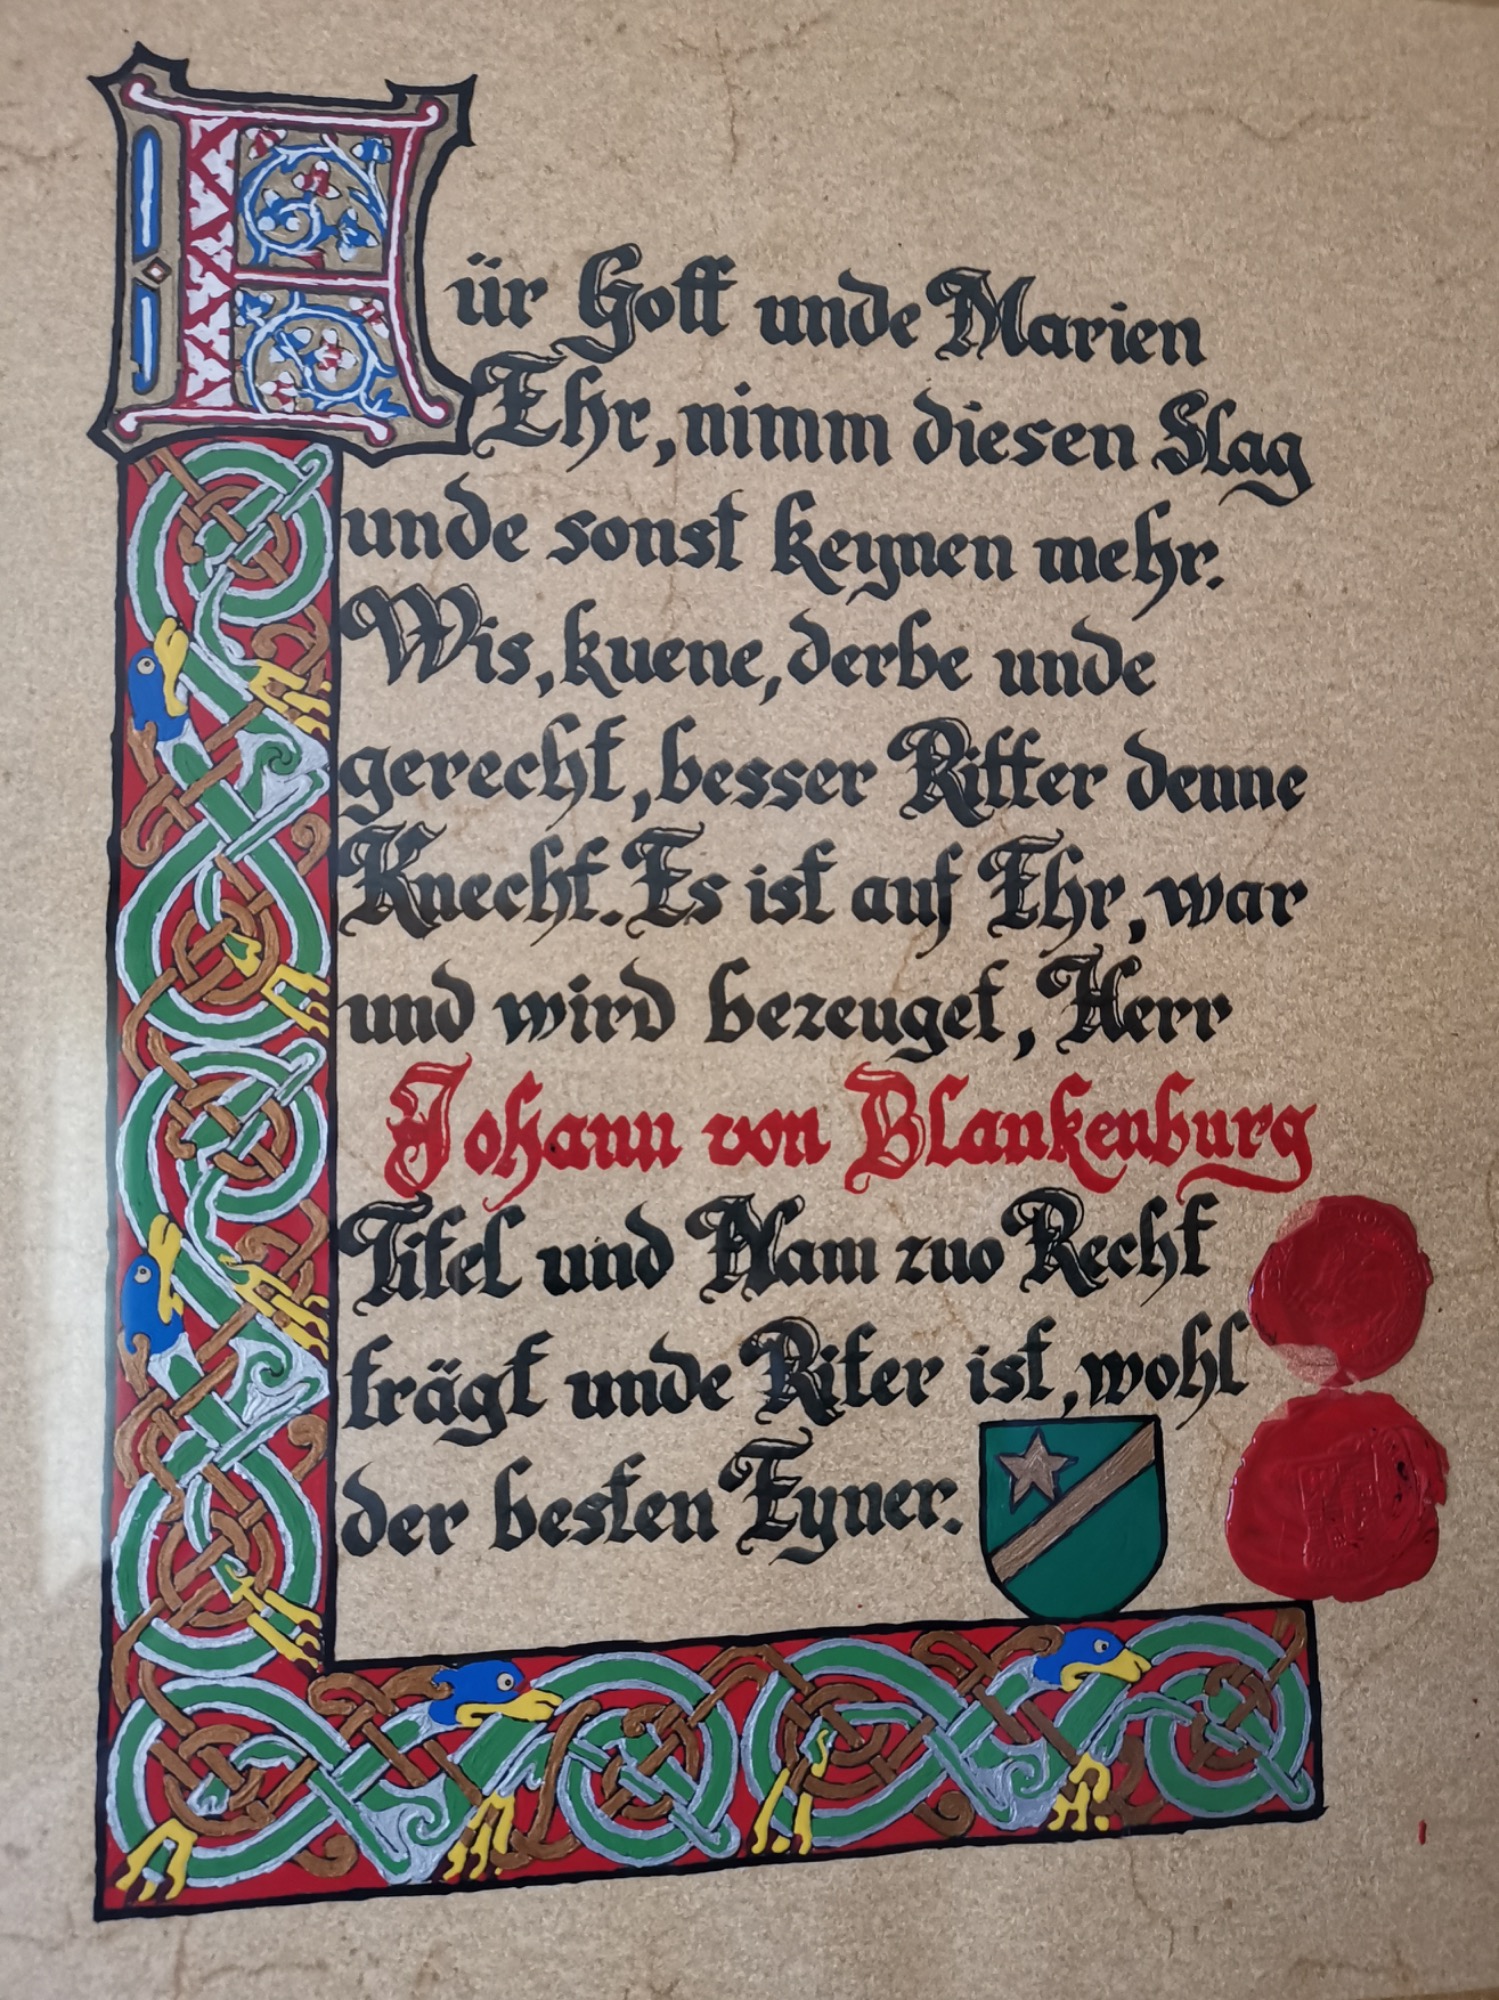 Für Gott unde Marien
Ehr, nimm diesen Slag
unde sonst keynen mehr.
Wis, kuene, derbe unde
gerecht, besser Ritter denne
Knecht. Es ist auf Ehr, war
und wird bezeuget, Herr
Johann von Blankenburg
Titel und Nam zuo Recht
trägt unde Riter ist, wohl
der besten Eyner.